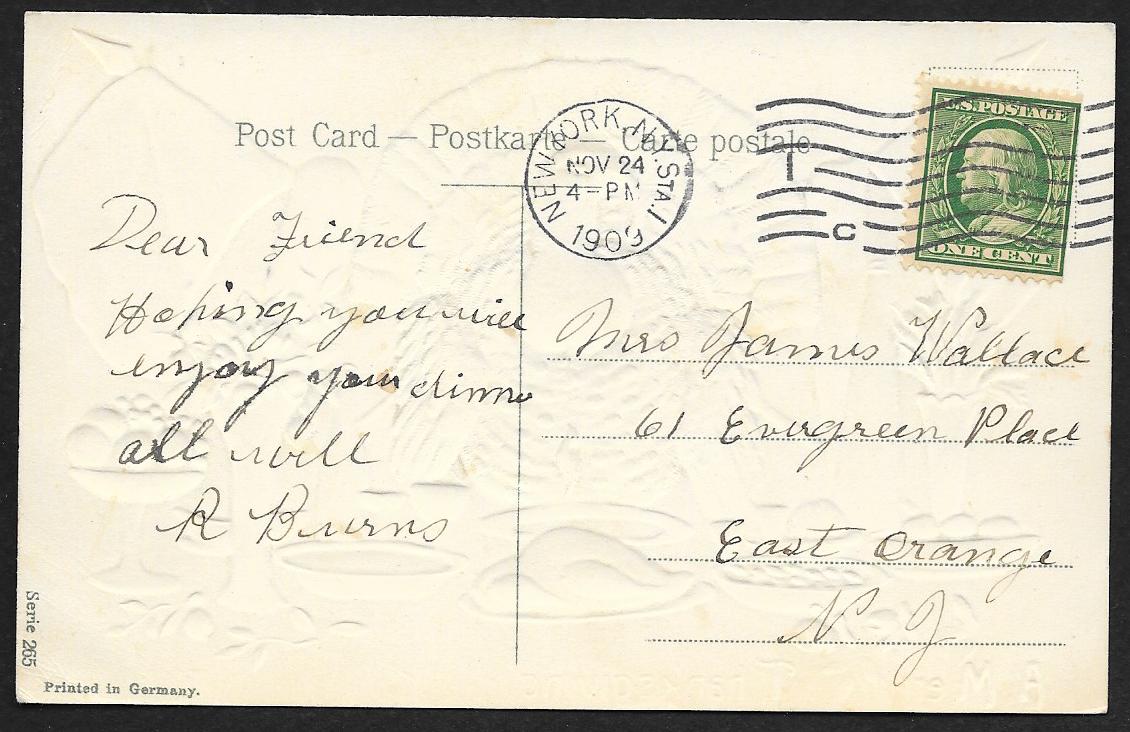 Post Card — Postkarte — Carte postale
NEW YORK, N.Y. STA. I
NOV 24
4-PM
1909
I
C
U.S. POSTAGE
ONE CENT
Dear Friend
Hoping you will
enjoy your dinne
all well
R Burns
Mrs James Wallace
61 Evergreen Place
East Orange
N. J
Serie 265
Printed in Germany.